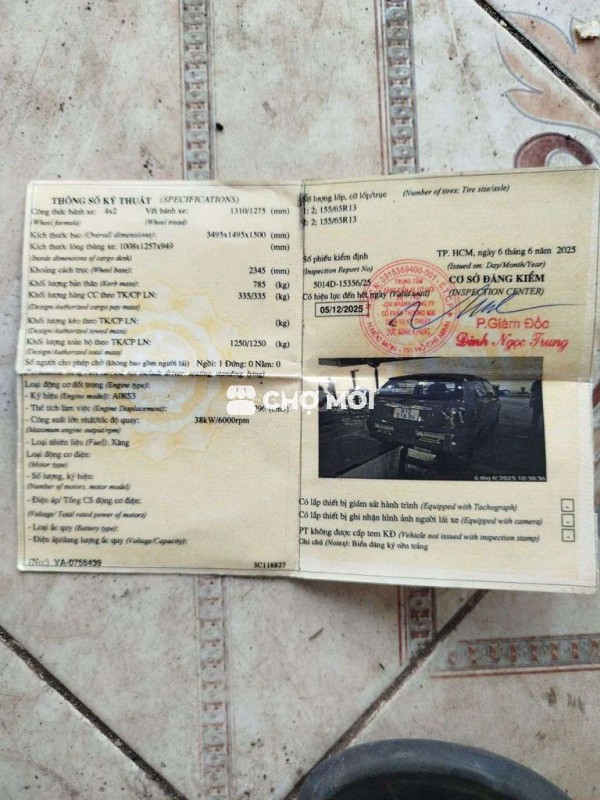 THÔNG SỐ KỸ THUẬT (SPECIFICATIONS)
Công thức bánh xe: 4x2 Vết bánh xe: 1310/1275 (mm)
(Wheel formula) (Wheel tread)
Kích thước bao (Overall dimensions): 3495x1495x1500 (mm)
Kích thước lòng thùng xe: 1008x1257x949 (mm)
(Inside dimensions of cargo deck)
Khoảng cách trục (Wheel base): 2345 (mm)
Khối lượng bản thân (Kerb mass): 785 (kg)
Khối lượng hàng CC theo TK/CP LN: 335/335 (kg)
(Design/Authorized cargo pay mass)
Khối lượng kéo theo TK/CP LN: (kg)
(Design/Authorized towed mass)
Khối lượng toàn bộ theo TK/CP LN: 1250/1250 (kg)
(Design/Authorized total mass)
Số người cho phép chở (không bao gồm người lái) Ngồi: 1 Đứng: 0 Nằm: 0
Loại động cơ đốt trong (Engine type):
- Ký hiệu (Engine model): A08S3
- Thể tích làm việc (Engine Displacement): 796
- Công suất lớn nhất/tốc độ quay: 38kW/6000rpm
(Maximum engine output/rpm)
- Loại nhiên liệu (Fuel): Xăng
Loại động cơ điện:
(Motor type)
- Số lượng, ký hiệu:
(Number of motors, motor model)
- Điện áp/ Tổng CS động cơ điện:
(Voltage/ Total rated power of motors)
- Loại ắc quy (Battery type):
- Điện áp/dung lượng ắc quy (Voltage/Capacity):
(No:) VA-0756499 3C118827
Số lượng lốp, cỡ lốp/trục (Number of tires; Tire size/axle)
1: 2; 155/65R13
2: 2; 155/65R13
Số phiếu kiểm định TP. HCM, ngày 6 tháng 6 năm 2025
(Inspection Report No) (Issued on: Day/Month/Year)
5014D-15356/25 CƠ SỞ ĐĂNG KIỂM
Có hiệu lực đến hết ngày (Valid until) (INSPECTION CENTER)
05/12/2025
P.Giám Đốc
Đinh Ngọc Trung
CHỢ TỐT
6 thg 6, 2025 10:38:36
Có lắp thiết bị giám sát hành trình (Equipped with Tachograph) -
Có lắp thiết bị ghi nhận hình ảnh người lái xe (Equipped with camera) -
PT không được cấp tem KĐ (Vehicle not issued with inspection stamp) -
Ghi chú (Notes): Biển đăng ký nền trắng